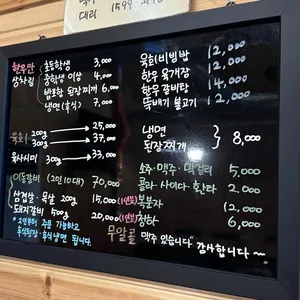 대리 1599
한우만
상차림
초등학생 3,000
중학생 이상 4,000
밥포함 된장찌개 6,000
냉면(후식) 7,000
육회 200g → 25,000
300g → 37,000
육사시미 300g → 33,000
이동갈비 (2인 10대) 70,000
삼겹살·목살 200g 15,000 (1인분)
돼지갈비 500g 20,000 (1인분)
*2인분이상 주문 가능하고
후식된장·후식냉면 됩니다.
육회비빔밥 12,000
한우 육개장 12,000
한우 갈비탕 14,000
뚝배기 불고기 12,000
냉면
된장찌개 8,000
소주·맥주·막걸리 5,000
콜라·사이다·환타 2,000
복분자 12,000
청하 6,000
무알콜 맥주 있습니다. 감사합니다~